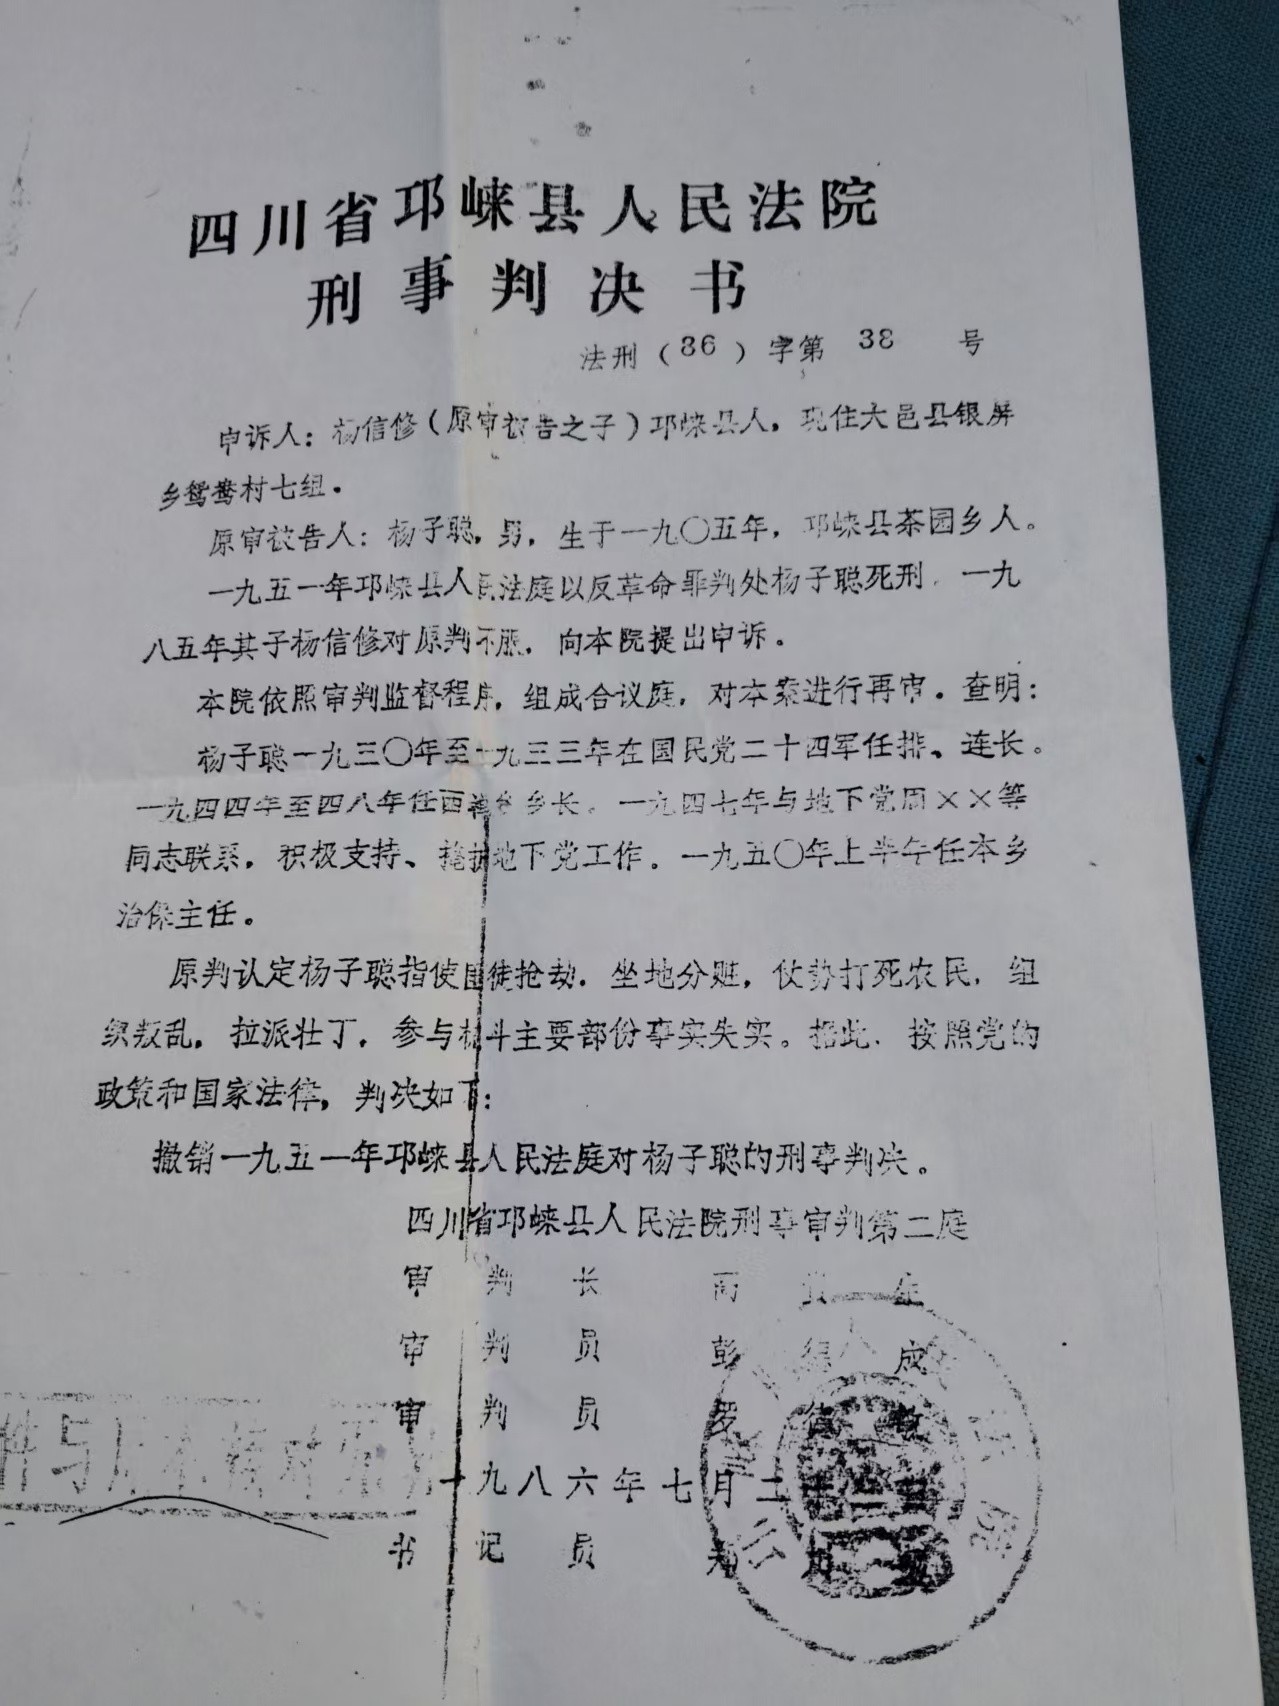 四川省邛崃县人民法院
刑事判决书
法刑（86）字第 38 号
申诉人：杨信修（原审被告之子）邛崃县人，现住大邑县银屏
乡鸳鸯村七组。
原审被告人：杨子聪，男，生于一九〇五年，邛崃县茶园乡人。
一九五一年邛崃县人民法庭以反革命罪判处杨子聪死刑。一九
八五年其子杨信修对原判不服，向本院提出申诉。
本院依照审判监督程序，组成合议庭，对本案进行再审。查明：
杨子聪一九三〇年至一九三三年在国民党二十四军任排、连长。
一九四四年至四八年任西 乡长。一九四七年与地下党周××等
同志联系，积极支持、掩护地下党工作。一九五〇年上半年任本乡
治保主任。
原判认定杨子聪指使匪徒抢劫，坐地分赃，仗势打死农民，组
织叛乱，拉派壮丁，参与械斗主要部份事实失实。据此，按照党的
政策和国家法律，判决如下：
撤销一九五一年邛崃县人民法庭对杨子聪的刑事判决。
四川省邛崃县人民法院刑事审判第二庭
审判长
审判员 彭 成
审判员 罗
件与原本核对无异
一九八六年七月二
书记员